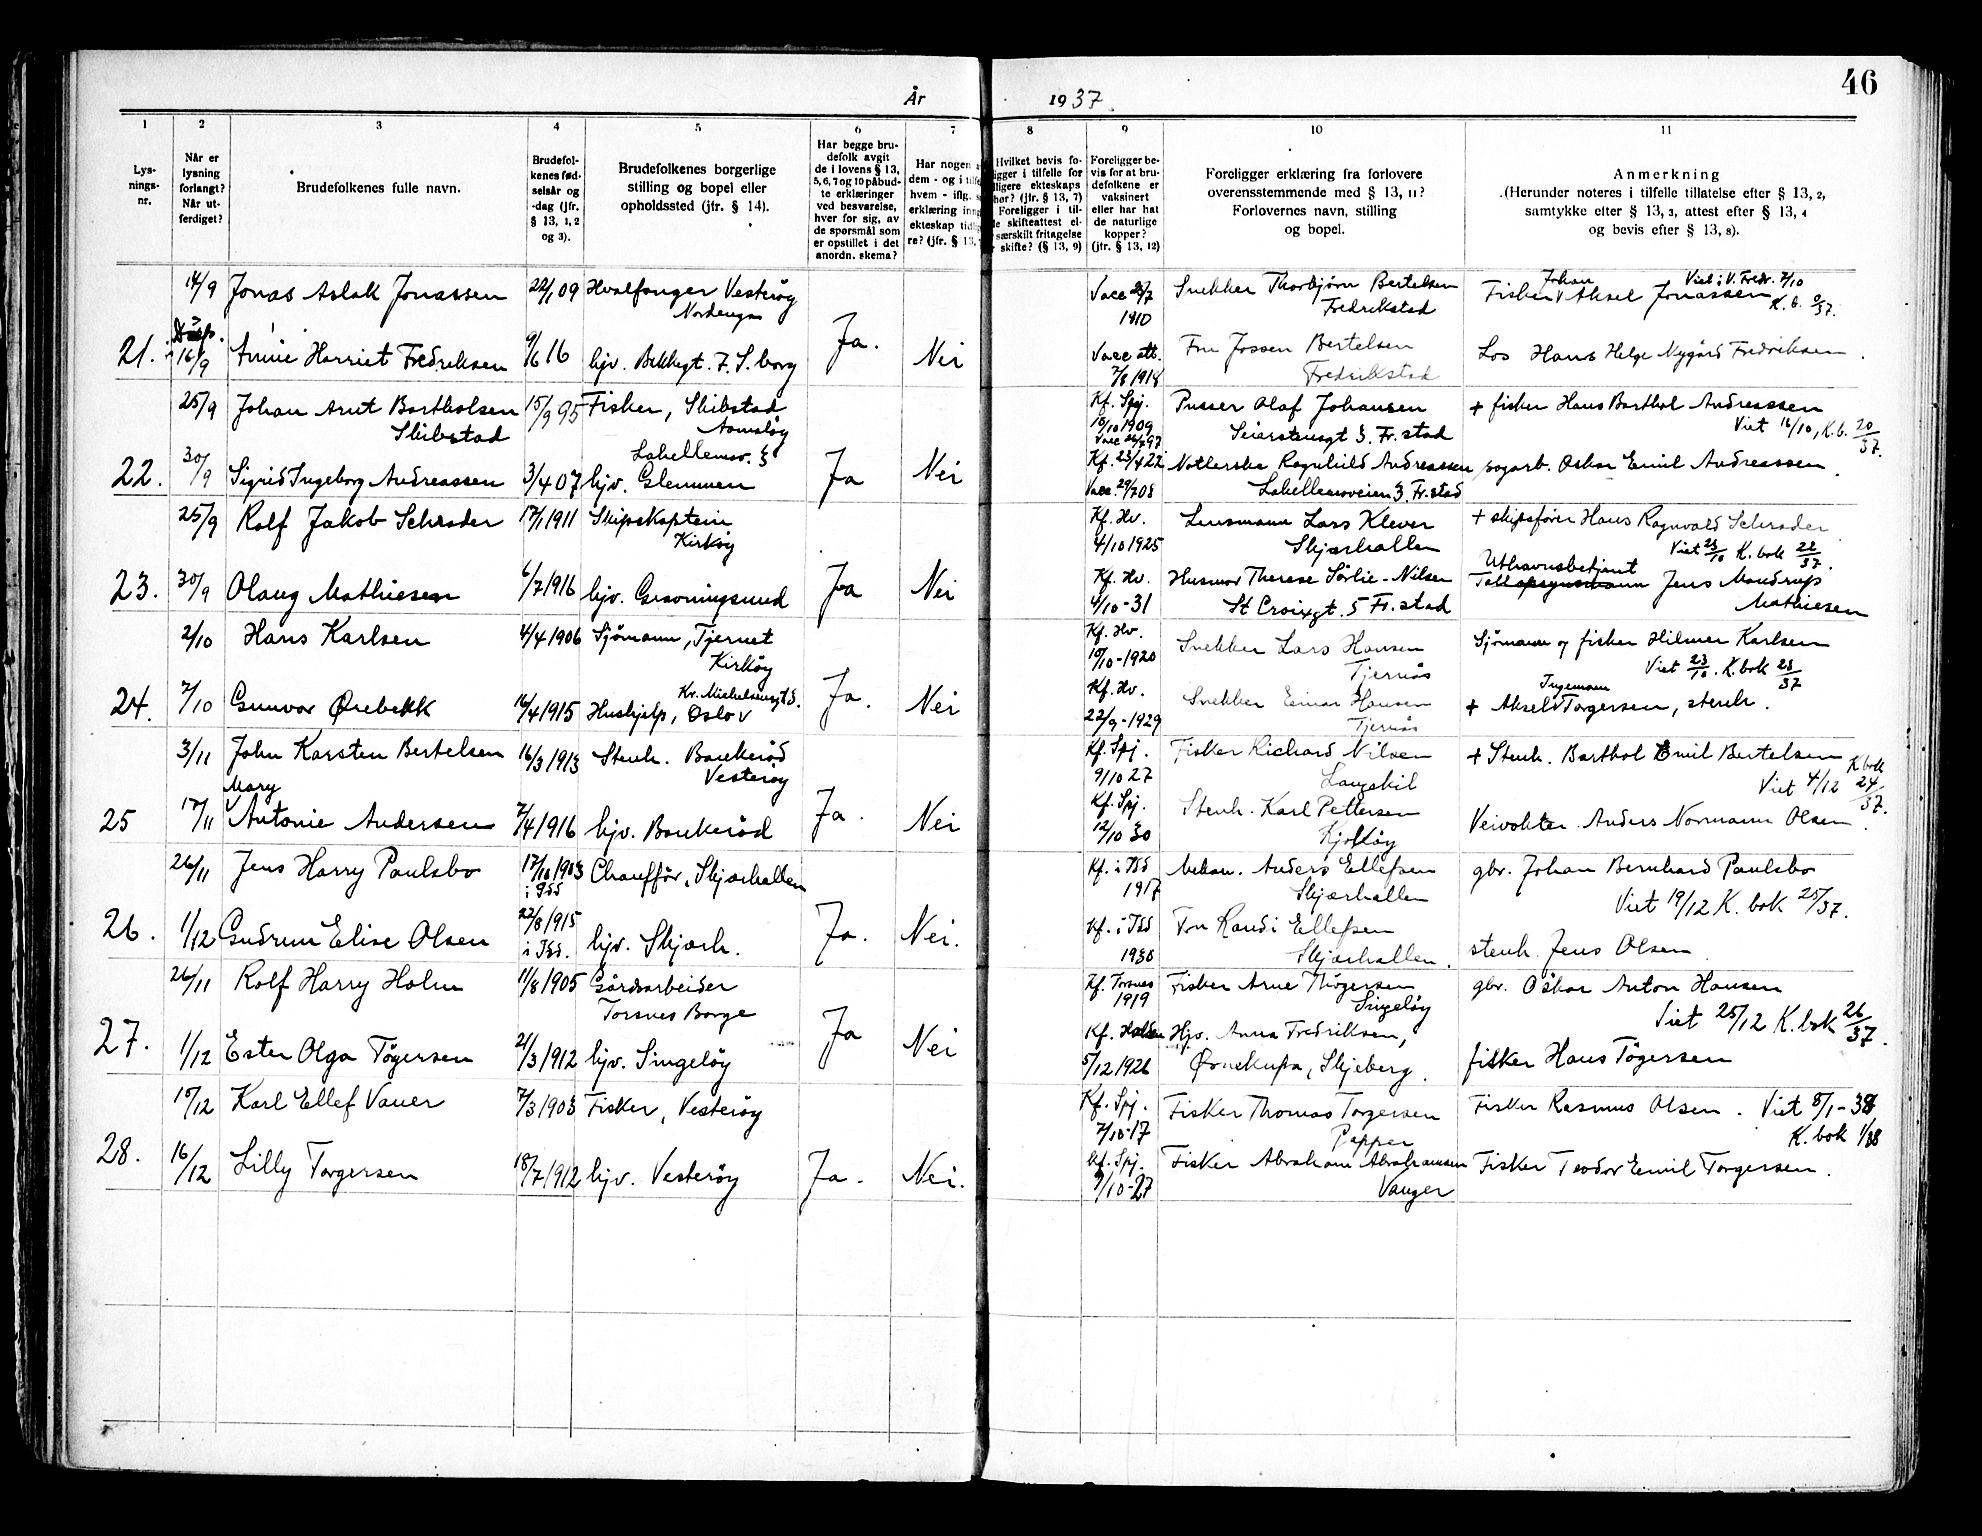 46
År 1937.
1 2 3 4 5 6 7 8 9 10 11
Lys-
nings-
nr.
Når er
lysning
forlangt?
Når ut-
ferdiget?
Brudefolkenes fulle navn.
Brudefol-
kenes fød-
selsår og
-dag (jfr.
§ 13, 1, 2
og 3).
Brudefolkenes borgerlige
stilling og bopel eller
opholdssted (jfr. § 14).
Har begge bru-
defolk avgit
de i lovens § 13,
5, 6, 7 og 10 påbud-
te erklæringer
ved besvarelse,
hver for sig, av
de spørsmål som
er opstillet i det
anordn. skema?
Har nogen a
dem - og i tilfe
hvem - iflg. s
erklæring inng
ekteskap tidl
re? (jfr. § 13,
Hvilket bevis fo-
igger i tilfelle for
lligere ekteskaps
hør? (jfr. § 13, 7)
Foreligger i til-
le skifteattest el-
særskilt fritagelse
skifte? (§ 13, 9)
Foreligger be-
vis for at bru-
defolkene er
vaksinert
eller har hat
de naturlige
kopper?
(jfr. § 13, 12)
Foreligger erklæring fra forlovere
overensstemmende med § 13, 11?
Forlovernes navn, stilling
og bopel.
Anmerkning
(Herunder noteres i tilfelle tillatelse efter § 13, 2,
samtykke efter § 13, 3, attest efter § 13, 4
og bevis efter § 13, 8).
14/9 Jonas Aslak Jonassen 22/1 09 Hvalfanger Vesterøy
Vacc 1910 Snekker Thorbjørn Bertelsen
Fredrikstad
Johan
Fisker Aksel Jonassen Viet i V. Fredr. 2/10
K. b. 37.
21. 16/9 Annie Harriet Fredriksen 9/6 16 hjv. 7. S. borg Ja. Nei
Vacc att. 7/8 1918 Fru Jossen Bertelsen
Fredrikstad
Los Hans Helge Nygård Fredriksen.
25/9 Johan Arnt Bartholsen 15/9 95 Fisker, Skibstad
Skibstad Asmaløy
Kf. Spj.
10/10 1909 Pusser Olaf Johansen
3. Fr. stad
+ fisker Hans Barthol Andreassen
Viet 16/10, K.b. 20/37.
22. 30/9 Sigrid Ingeborg Andreassen 3/4 07 Labellensv. 3
hjv. Glemmen Ja Nei
Vacc. Ragnhild Andreassen
Labellensveien 3 Fr. stad
Oskar Emil Andreassen.
25/9 Rolf Jakob Schrøder 17/1 1911 Skipskaptein
Kirkøy
Kf. Hv.
4/10 1925 Lensmann Lars Klever
Skjærhallen
+ skipsfører Hans Ragnvald Schrøder
Viet 23/10 K. bok 22/37.
23. 30/9 Olaug Mathiesen 6/7 1916 hjv. Grønningsund Ja Nei
Kf. Hv.
4/10-31 Husmor Therese Sørlie-Nilsen
St Croixgt. 5 Fr. stad
Uthavnsbetjent
Jens Mandrup
Mathiesen
2/10 Hans Karlsen 4/4 1906 Sjømann, Tjernet
Kirkøy
Kf. Hv.
10/10-1920 Snekker Lars Hansen
Tjernås
Sjømann og fisker Hilmer Karlsen
Viet 23/10. K. bok 23/37
24. 7/10 Gunvor Ørebekk 16/4 1915 Kr. Michelsensgt
Hushjelp, Oslo Ja. Nei
Kf. Hv.
22/9-1929 Snekker Einar Hansen
Tjernås
Ingemann
+ Aksel Torgersen, stenh.
3/11 John Karsten Bertelsen 16/3 1913 Stenh. Bankerød
Vesterøy
Kf. Spj.
9/10 27 Fisker Richard Nilsen
+ Stenh. Barthol Emil Bertelsen
Viet 4/12 K bok 24/37.
25 17/11 Mary
Antonie Andersen 7/4 1916 hjv. Bankerød Ja. Nei
Kf. Spj.
12/10 30 Stenh. Karl Pettersen
Kjøkøy
Veivokter Anders Normann Olsen.
26/11 Jens Harry Paulsbo 17/10 1903
i Idd Chauffør, Skjærhallen
Kf. i Idd
1917 Anders Ellefsen
Skjærhallen
gbr. Johan Bernhard Paulsbo
Viet 19/12 K. bok 25/37.
26. 1/12 Gudrun Elise Olsen 22/8 1915
i Idd. hjv. Skjærh. Ja. Nei.
Kf. i Idd
1930 Fru Randi Ellefsen
Skjærhallen.
stenh. Jens Olsen
26/11 Rolf Harry Holm 11/8 1905 Gårdsarbeider
Torsnes Borge
Kf. Torsnes
1919 Fisker Arne Thøgersen
Singeløy
gbr. Oskar Anton Hansen
Viet 25/12 K. bok 26/37.
27. 1/12 Ester Olga Tøgersen 21/3 1912 hjv. Singeløy Ja Nei
5/12 1926 Hjv. Anna Fredriksen,
Skjeberg.
fisker Hans Tøgersen
15/12 Karl Ellef Vauer 7/3 1903 Fisker, Vesterøy
Kf. Spj.
7/10-17 Fisker Thomas Torgersen
Papper
Fisker Rasmus Olsen. Viet 8/1-38
K. bok 1/38
28. 16/12 Lilly Torgersen 18/7 1912 hjv. Vesterøy Ja. Nei.
Kf. Spj.
9/10-27 Fisker Abraham Abrahamsen
Vauger
Fisker Teodor Emil Torgersen.